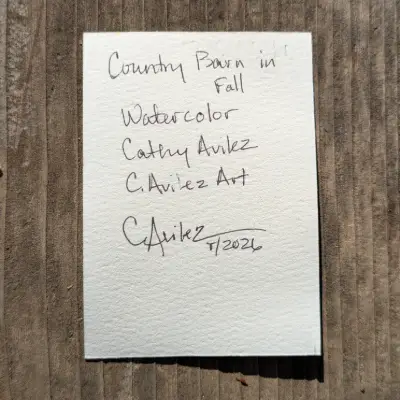 Country Barn in
Fall
Watercolor
Cathy Avilez
C. Avilez Art
C. Avilez
/2026